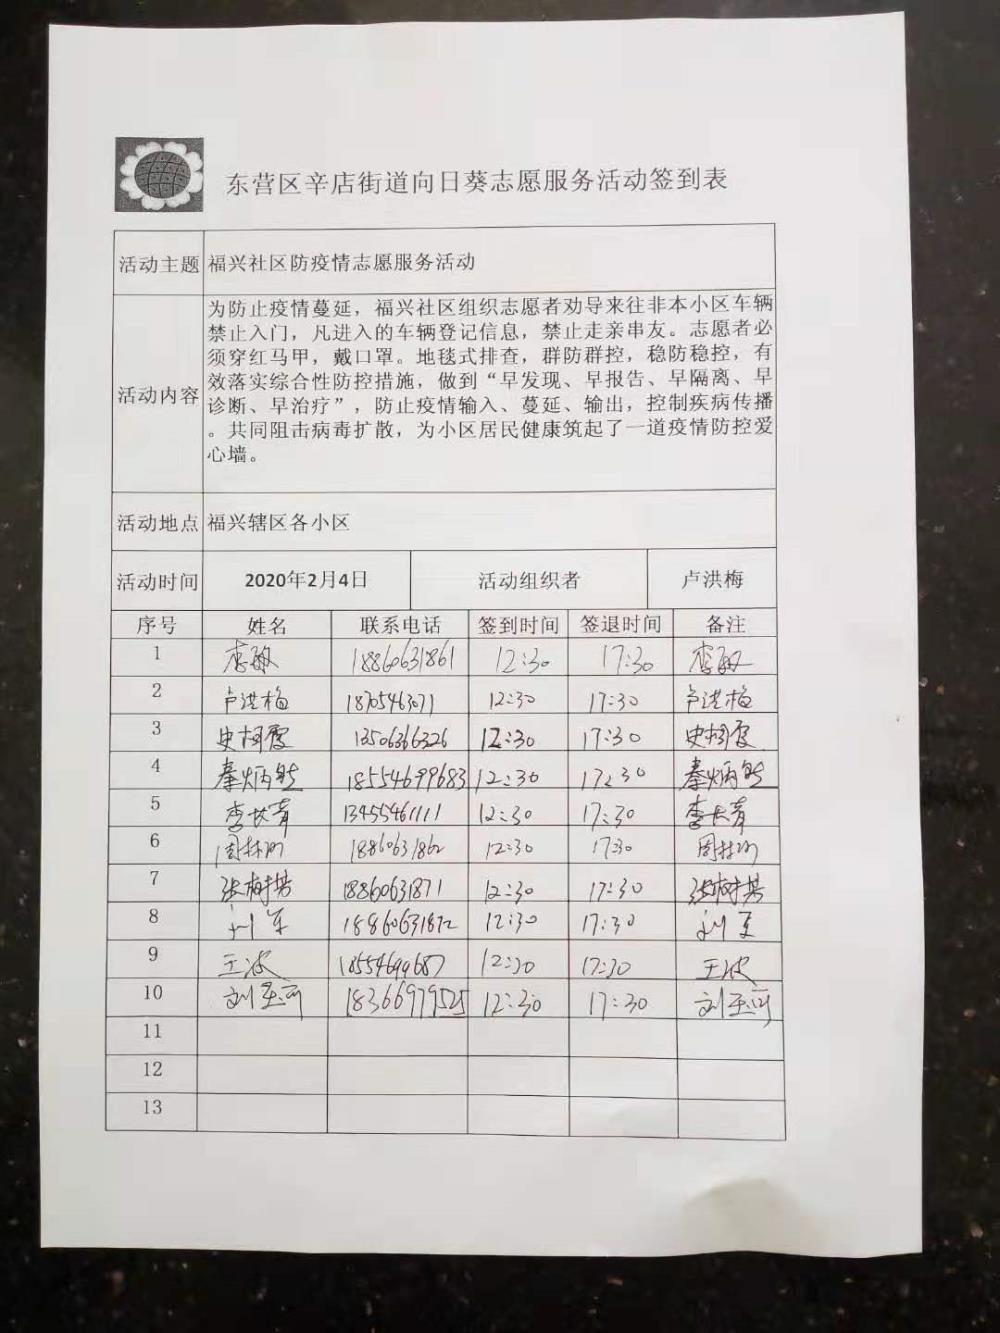 东营区辛店街道向日葵志愿服务活动签到表
活动主题 福兴社区防疫情志愿服务活动
活动内容
为防止疫情蔓延，福兴社区组织志愿者劝导来往非本小区车辆
禁止入门，凡进入的车辆登记信息，禁止走亲串友。志愿者必
须穿红马甲，戴口罩。地毯式排查，群防群控，稳防稳控，有
效落实综合性防控措施，做到“早发现、早报告、早隔离、早
诊断、早治疗”，防止疫情输入、蔓延、输出，控制疾病传播
。共同阻击病毒扩散，为小区居民健康筑起了一道疫情防控爱
心墙。
活动地点 福兴辖区各小区
活动时间 2020年2月4日 活动组织者 卢洪梅
序号 姓名 联系电话 签到时间 签退时间 备注
1 李敏 18860631861 12:30 17:30 李敏
2 卢洪梅 18705463071 12:30 17:30 卢洪梅
3 13506366326 12:30 17:30
4 秦炳 18554699683 12:30 17:30 秦炳
5 李长青 13455461111 12:30 17:30 李长青
6 18860631862 12:30 17:30
7 张树 18860631871 12:30 17:30 张树
8 刘军 18860631872 12:30 17:30 刘军
9 王波 18554699687 12:30 17:30 王波
10 刘 18366979525 12:30 17:30 刘
11
12
13